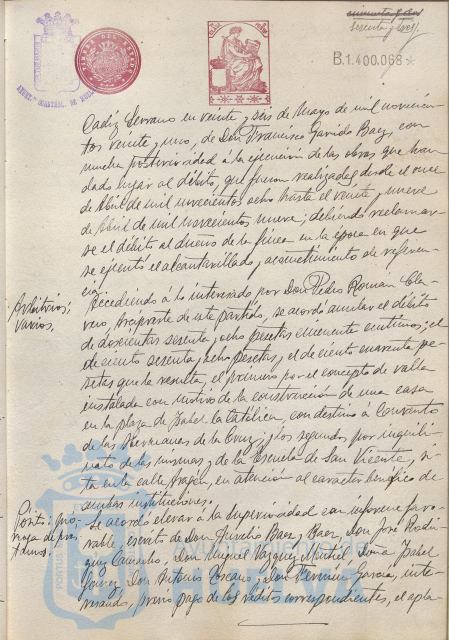 cincuenta y dos
sesenta y tres
B.1.400,068
Cadiz Serrano en veinte y seis de Mayo de mil novecien-
tos veinte y uno, de Don Francisco Garrido Baez, con
mucha posterioridad á la ejecución de las obras que han
dado lugar al débito, que fueron realizadas desde el once
de Abril de mil novecientos ocho hasta el veinte y nueve
de Abril de mil novecientos nueve; debiendo reclamar-
se el débito al dueño de la finca en la época en que
se ejecutó el alcantarillado, acuchitimiento de referen-
cia.
Arbitrios;
varios.
Accediendo á lo interesado por Don Pedro Roman Cla-
vero, Arcipreste de este partido, se acordó anular el débito
de doscientas sesenta y ocho pesetas cincuenta centimos; el
de ciento sesenta y ocho pesetas, y el de ciento cuarenta pe-
setas que le resulta, el primero por el concepto de valla
instalada con motivo de la construcción de una casa
en la plaza de Isabel la Católica, con destino á Convento
de las Hermanas de la Cruz, y los segundos por inquili-
nato de las mismas, y de la Escuela de San Vicente, si-
ta en la calle Aragón, en atención al caracter benéfico de
ambas instituciones.
Pósito; pró-
rroga de prés-
tamos.
Se acordó elevar á la superioridad con informe favo-
rable, escrito de Don Aurelio Baez y Baez, Don José Rodri-
guez Camacho, Don Miguel Vazquez Montiel, Doña Isabel
Don Antonio Toscano y Don Fermín García, inte-
resando, previo pago de los réditos correspondientes, el apla-